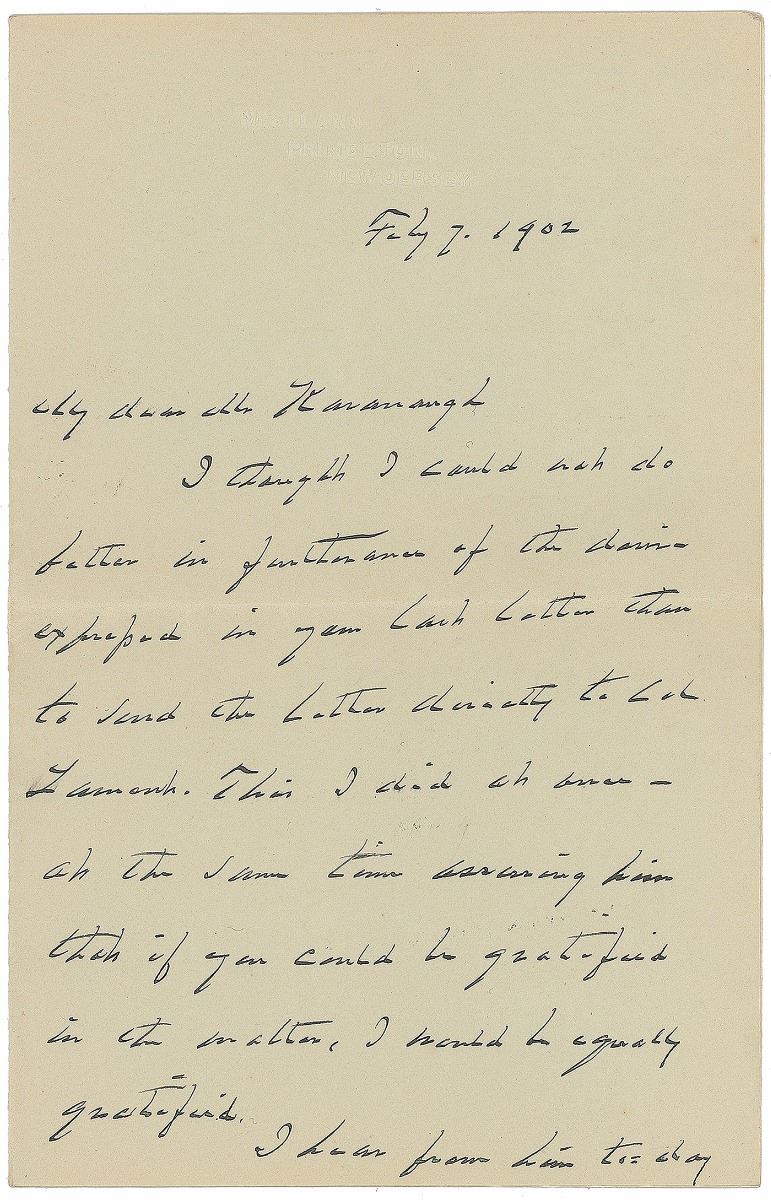 WESTLAND
PRINCETON,
NEW JERSEY.
Feby 7. 1902
My dear Mr Kavanaugh
I thought I could not do
better in furtherance of the desire
expressed in your last letter than
to send the letter directly to Col
Lamont. This I did at once —
at the same time assuring him
that if you could be gratified
in the matter, I would be equally
gratified.
I hear from him to-day